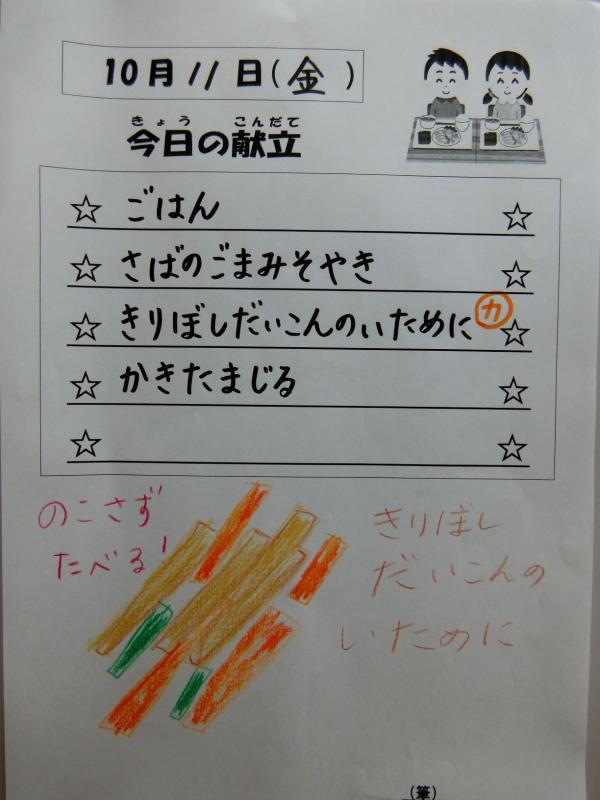 10月11日(金)
きょう こんだて
今日の献立
☆ ごはん ☆
☆ さばのごまみそやき ☆
☆ きりぼしだいこんのいために カ ☆
☆ かきたまじる ☆
☆ ☆
のこさず
たべる!
きりぼし
だいこんの
いために
(筆)